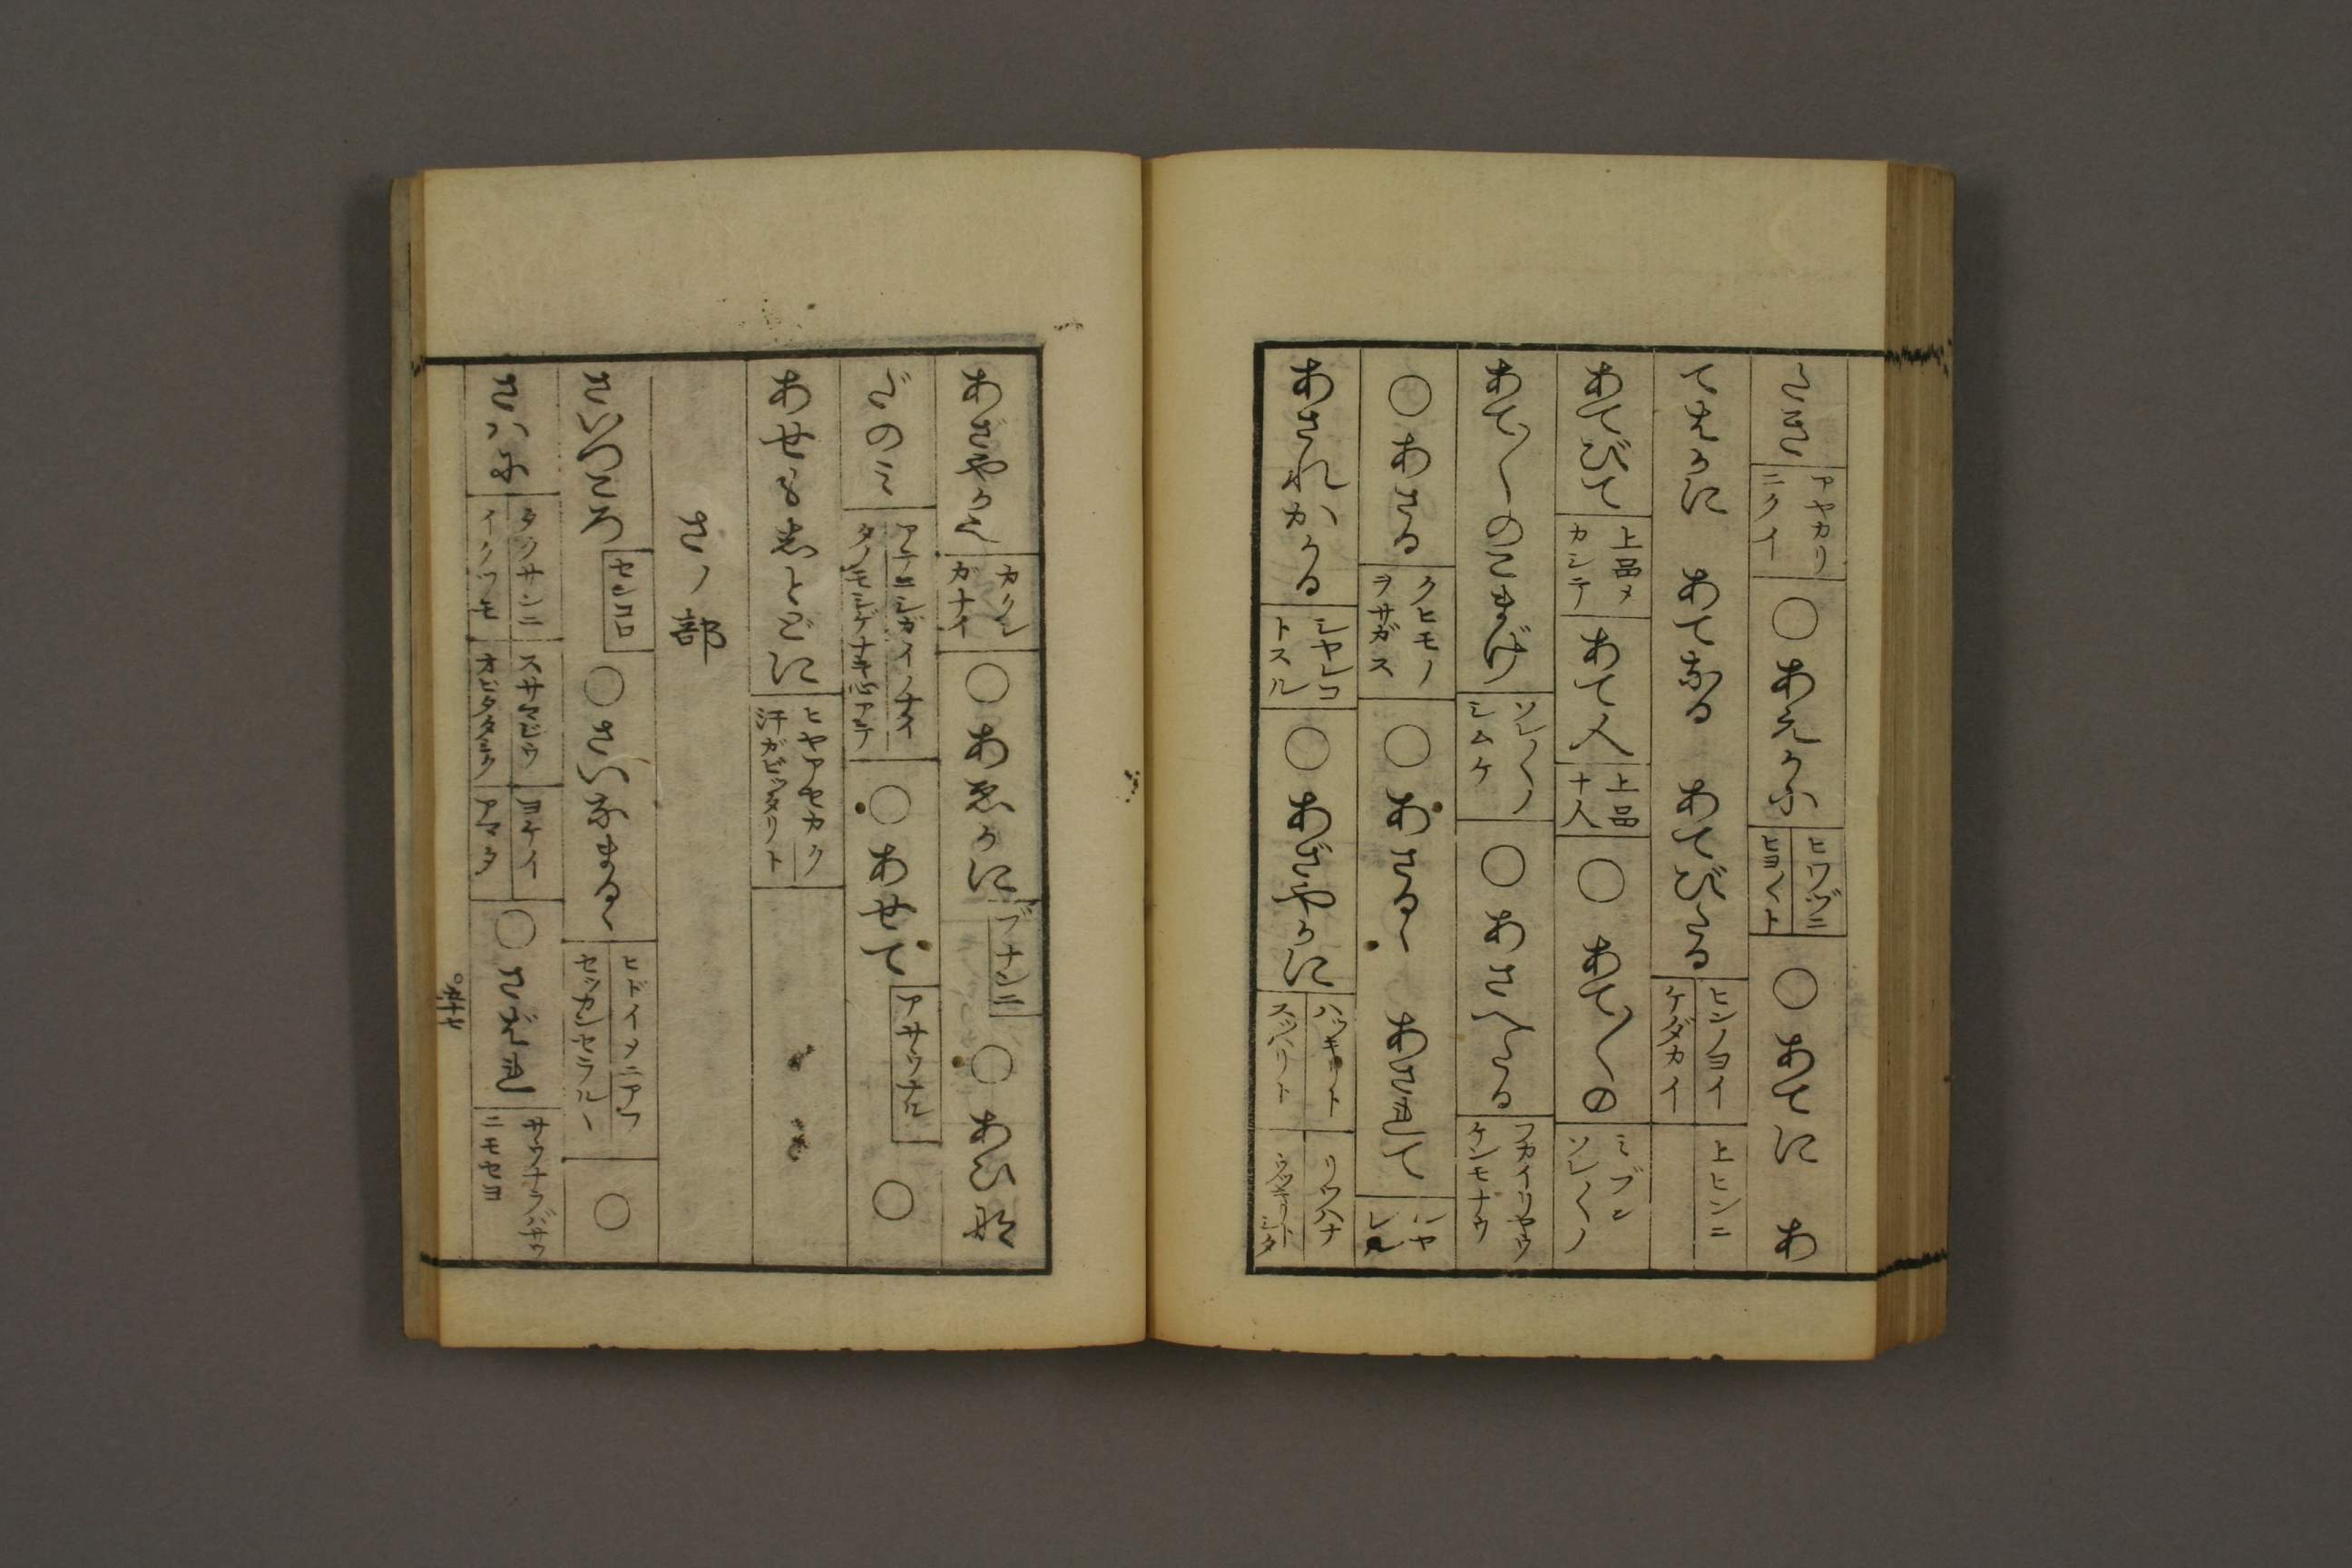 たき アヤカリ ニクイ ○あえかに ヒワヅニ ヒヨ〳〵ト ○あてに あ
てえかに あてなる あてびたる ヒンノヨイ ケダカイ 上ヒンニ
あてびて 上品メ カシテ あて人 上品 ナ人 ○あて〳〵の ミブン ソレ〳〵ノ
あて〳〵のこまげ ソレ〳〵ノ シムケ ○あさへたる フカイリヤウ ケンモナウ
○あさる クヒモノ ヲサガス ○あさるゝ あされて シヤ レル
あされかゝる シヤレコ トスル ○あざやかに ハツキリト スツハリト リツハナ
あざやかに カクシ ガナイ ○あゑかに ブナンニ ○あひな
だのミ アテニシガイノナイ ○あせて アサウナル ○
あせもしとゞに ヒヤアセカク 汗ガビツタリト
さノ部
さいつころ センコロ ○さいなまるゝ ヒドイメニアフ セツカンセラルヽ ○
さハに タクサンニ イクツモ ヨケイ アマタ ○さばれ サウナラバサウ ニモセヨ
五十七